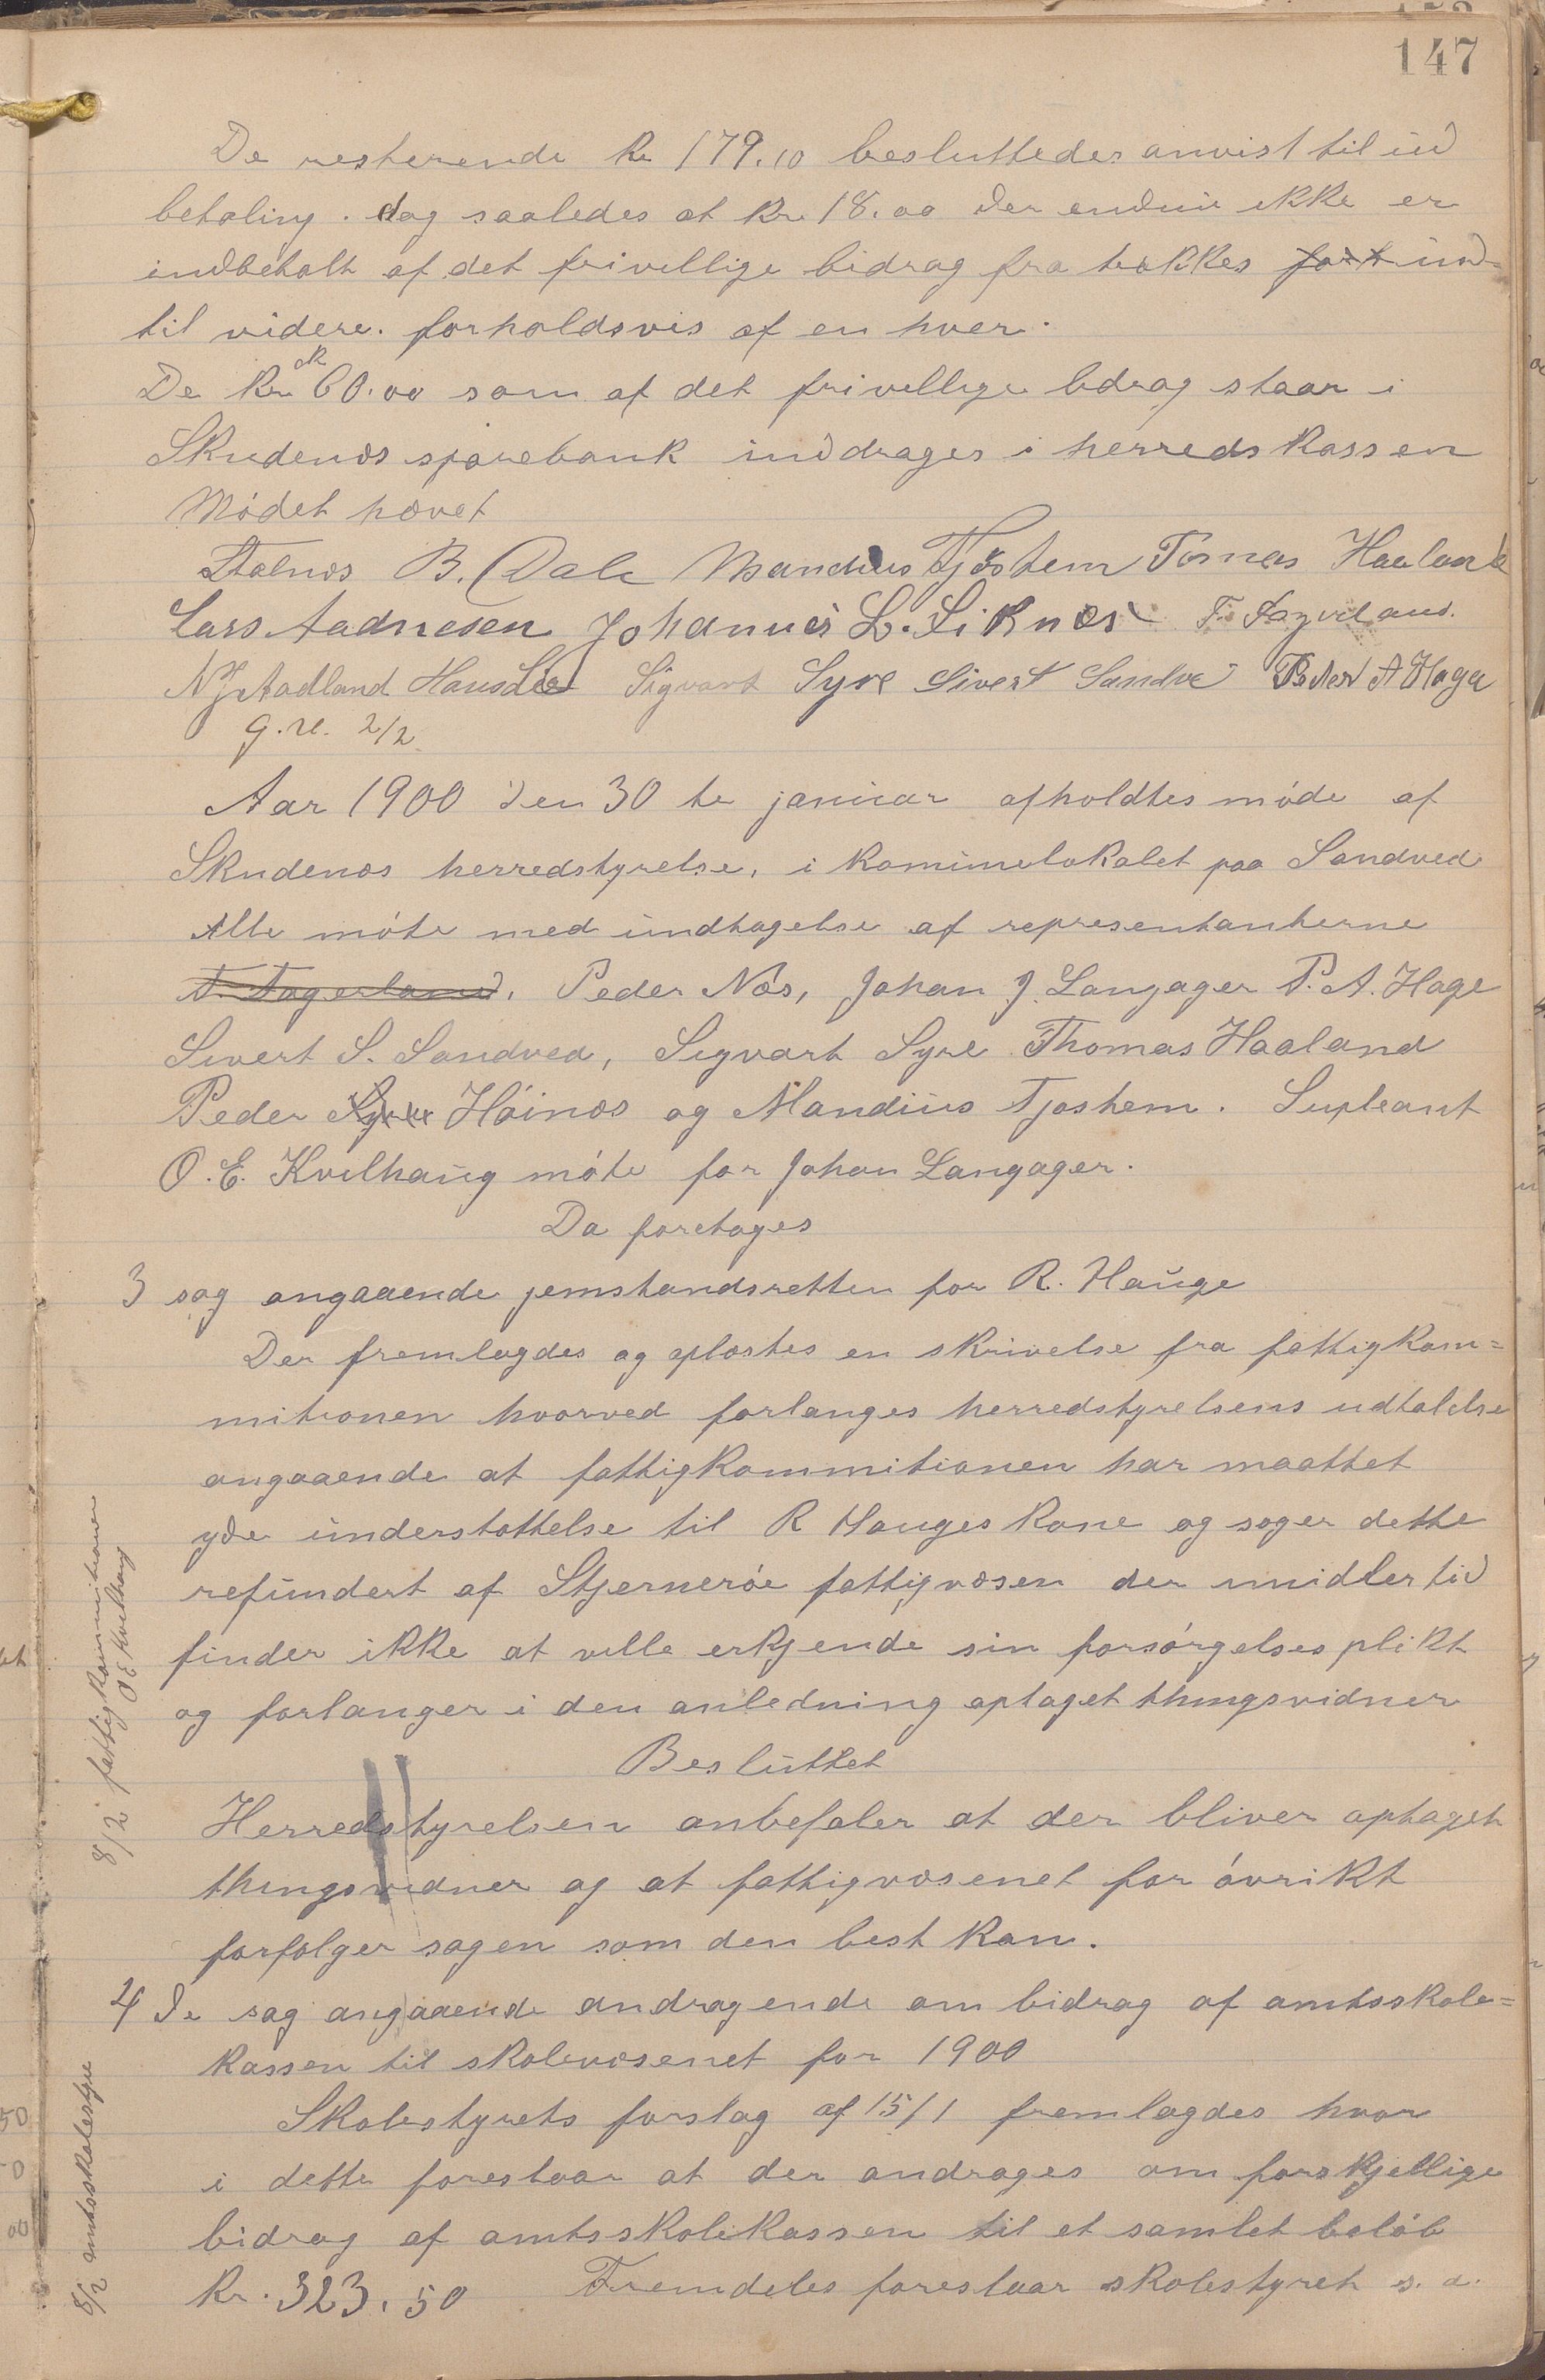 147
De resterende Kr 179.10 besluttedes anvist til ud
betaling. dog saaledes at Kr. 18.00 der endnu ikke er
indbetalt af det frivillige bidrag fra trækkes ind=
til videre. forholdsvis af en hver.
De Kr. 60.00 som af det frivillige bdrag staar i
Skudenæs sparebank inddrages i herreds Kassen
Mødet hævet
Stalnæs B. Dale Mandius Tjøshem Tomas Haaland
Lars Aadnesen Johannes L. Liknes
N J Aadland Hans Lie Sigvart Syre Sivert Sandve Peder A Haga
G. U. 2/2
Aar 1900 den 30 te januar afholdtes møde af
Skudenæs herredstyrelse, i Komunelokalet paa Sandved
Alle møte med undtagelse af representanterne
T. Fagerland, Peder Næs, Johan J. Langager P. A. Hage
Sivert S. Sandved, Sigvart Syre Thomas Haaland
Peder Syre Høinæs og Mandius Tjøshem. Supleant
O. E. Kvilhaug møte for Johan Langager.
Da foretages
3 sag angaaende jemstandsretten for R. Hauge
Der fremlagdes og oplæstes en skrivelse fra fattigkom=
mitionen hvorved forlanges herredstyrelsens udtalelse
angaaende at fattigkommitionen har maattet
yde understøttelse til R Hauges Kone og søger dette
refundert af Stjernerøe fattigvæsen der imidlertid
finder ikke at ville erkjende sin forsørgelses plikt
og forlanger i den anledning optaget thingsvidner
Besluttet
Herredstyrelsen anbefaler at der bliver optaget
thingsvidner og at fattigvæsenet for øvrikt
forfølger sagen som den best Kan.
4 de sag angaaende andragende om bidrag af amtsskole=
kassen til skolevæsenet for 1900
Skolestyrets forslag af 15/1 fremlagdes hvor
i dette forestaar at der andrages om forskjellige
bidrag af amtsskolekassen til et samlet beløb
Kr. 323.50 Fremdeles foreslaar skolestyret s. a.
8/2 fattigkommitionen
O E Kvilhaug
8/2 amtsskolestyre